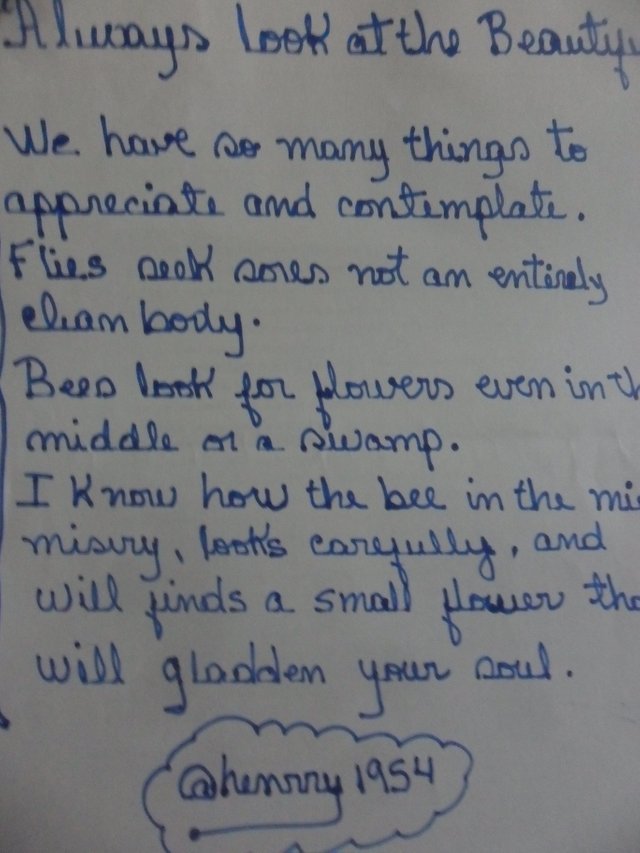 Always look at the Beautifu
We have so many things to
appreciate and contemplate.
Flies seek sores not an entirely
clean body.
Bees look for flowers even in th
middle or a swamp.
I know how the bee in the mi
misiry, looks carefully, and
will finds a small flower tha
will gladden your soul.
@henrry 1954